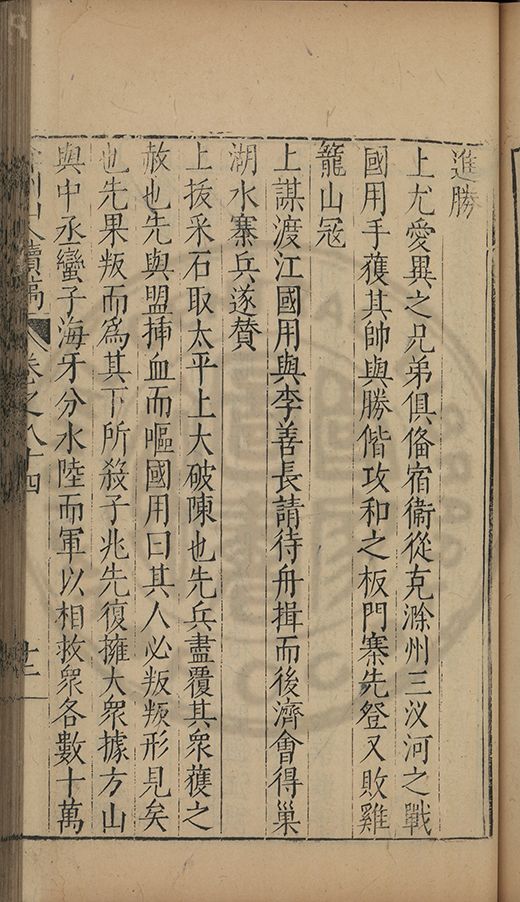 進勝
上尤愛異之兄弟俱俻宿衞從克滁州三汊河之戰
國用手獲其帥與勝偕攻和之板門寨先登又敗雞
籠山冦
上謀渡江國用與李善長請待舟揖而後濟會得巢
湖水寨兵遂賛
上拔采石取太平上大破陳也先兵盡覆其衆獲之
赦也先與盟揷血而嘔國用曰其人必叛叛形見矣
也先果叛而爲其下所殺子兆先復擁大衆據方山
與中丞蠻子海牙分水陸而軍以相救衆各數十萬
續稿 卷之八十四 十二